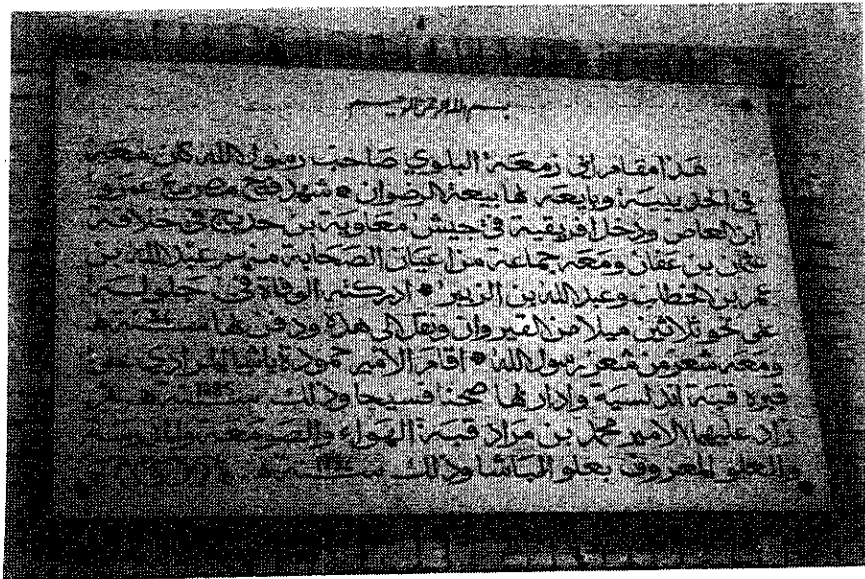 بسم الله الرحمن الرحيم
هذا مقام ابي زمعة البلوي صاحب رسول الله كان معه
في الحديبية وبايعه بها بيعة الرضوان شهد فتح مصر مع عمرو
ابن العاص ودخل افريقية في جيش معاوية بن حديج في خلافة
عثمن بن عفان ومعه جماعة من اعيان الصحابة منهم عبد الله بن
عمر بن الخطاب وعبد الله بن الزبير ادركته الوفاة في جلولة
على نحو ثلاثين ميلا من القيروان ونقل الى هذه ودفن بها سنة هـ
ومعه شعر من شعر رسول الله اقام الامير حمودة باشا المرادي على
قبره قبة اندلسية وادار بها صحنا فسيحا وذلك سنة هـ ثم
زاد عليها الامير محمد بن مراد قبة الهواء والصومعة والمدرسة
والعلو المعروف بعلو الباشا وذلك سنة هـ